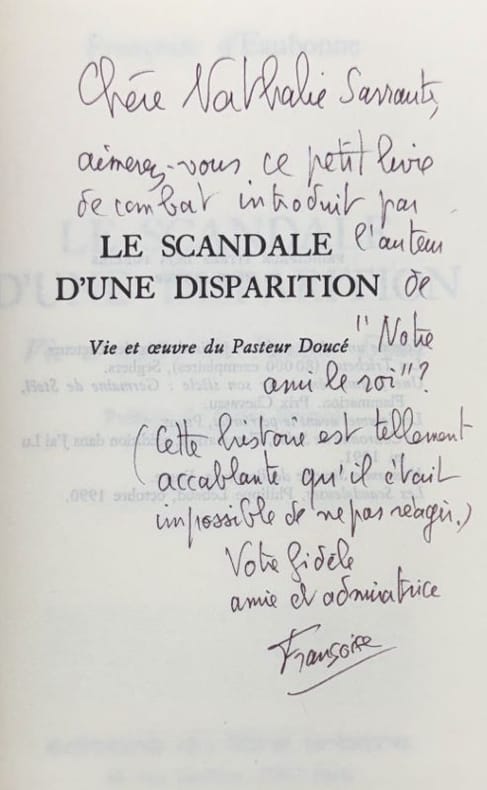 Chère Nathalie Sarraute,
aimerez-vous ce petit livre
de combat introduit par
LE SCANDALE l'auteur
D'UNE DISPARITION de
Vie et œuvre du Pasteur Doucé "Notre
ami le roi"?
(Cette histoire est tellement
accablante qu'il était
impossible de ne pas réagir.)
Votre fidèle
amie et admiratrice
Françoise